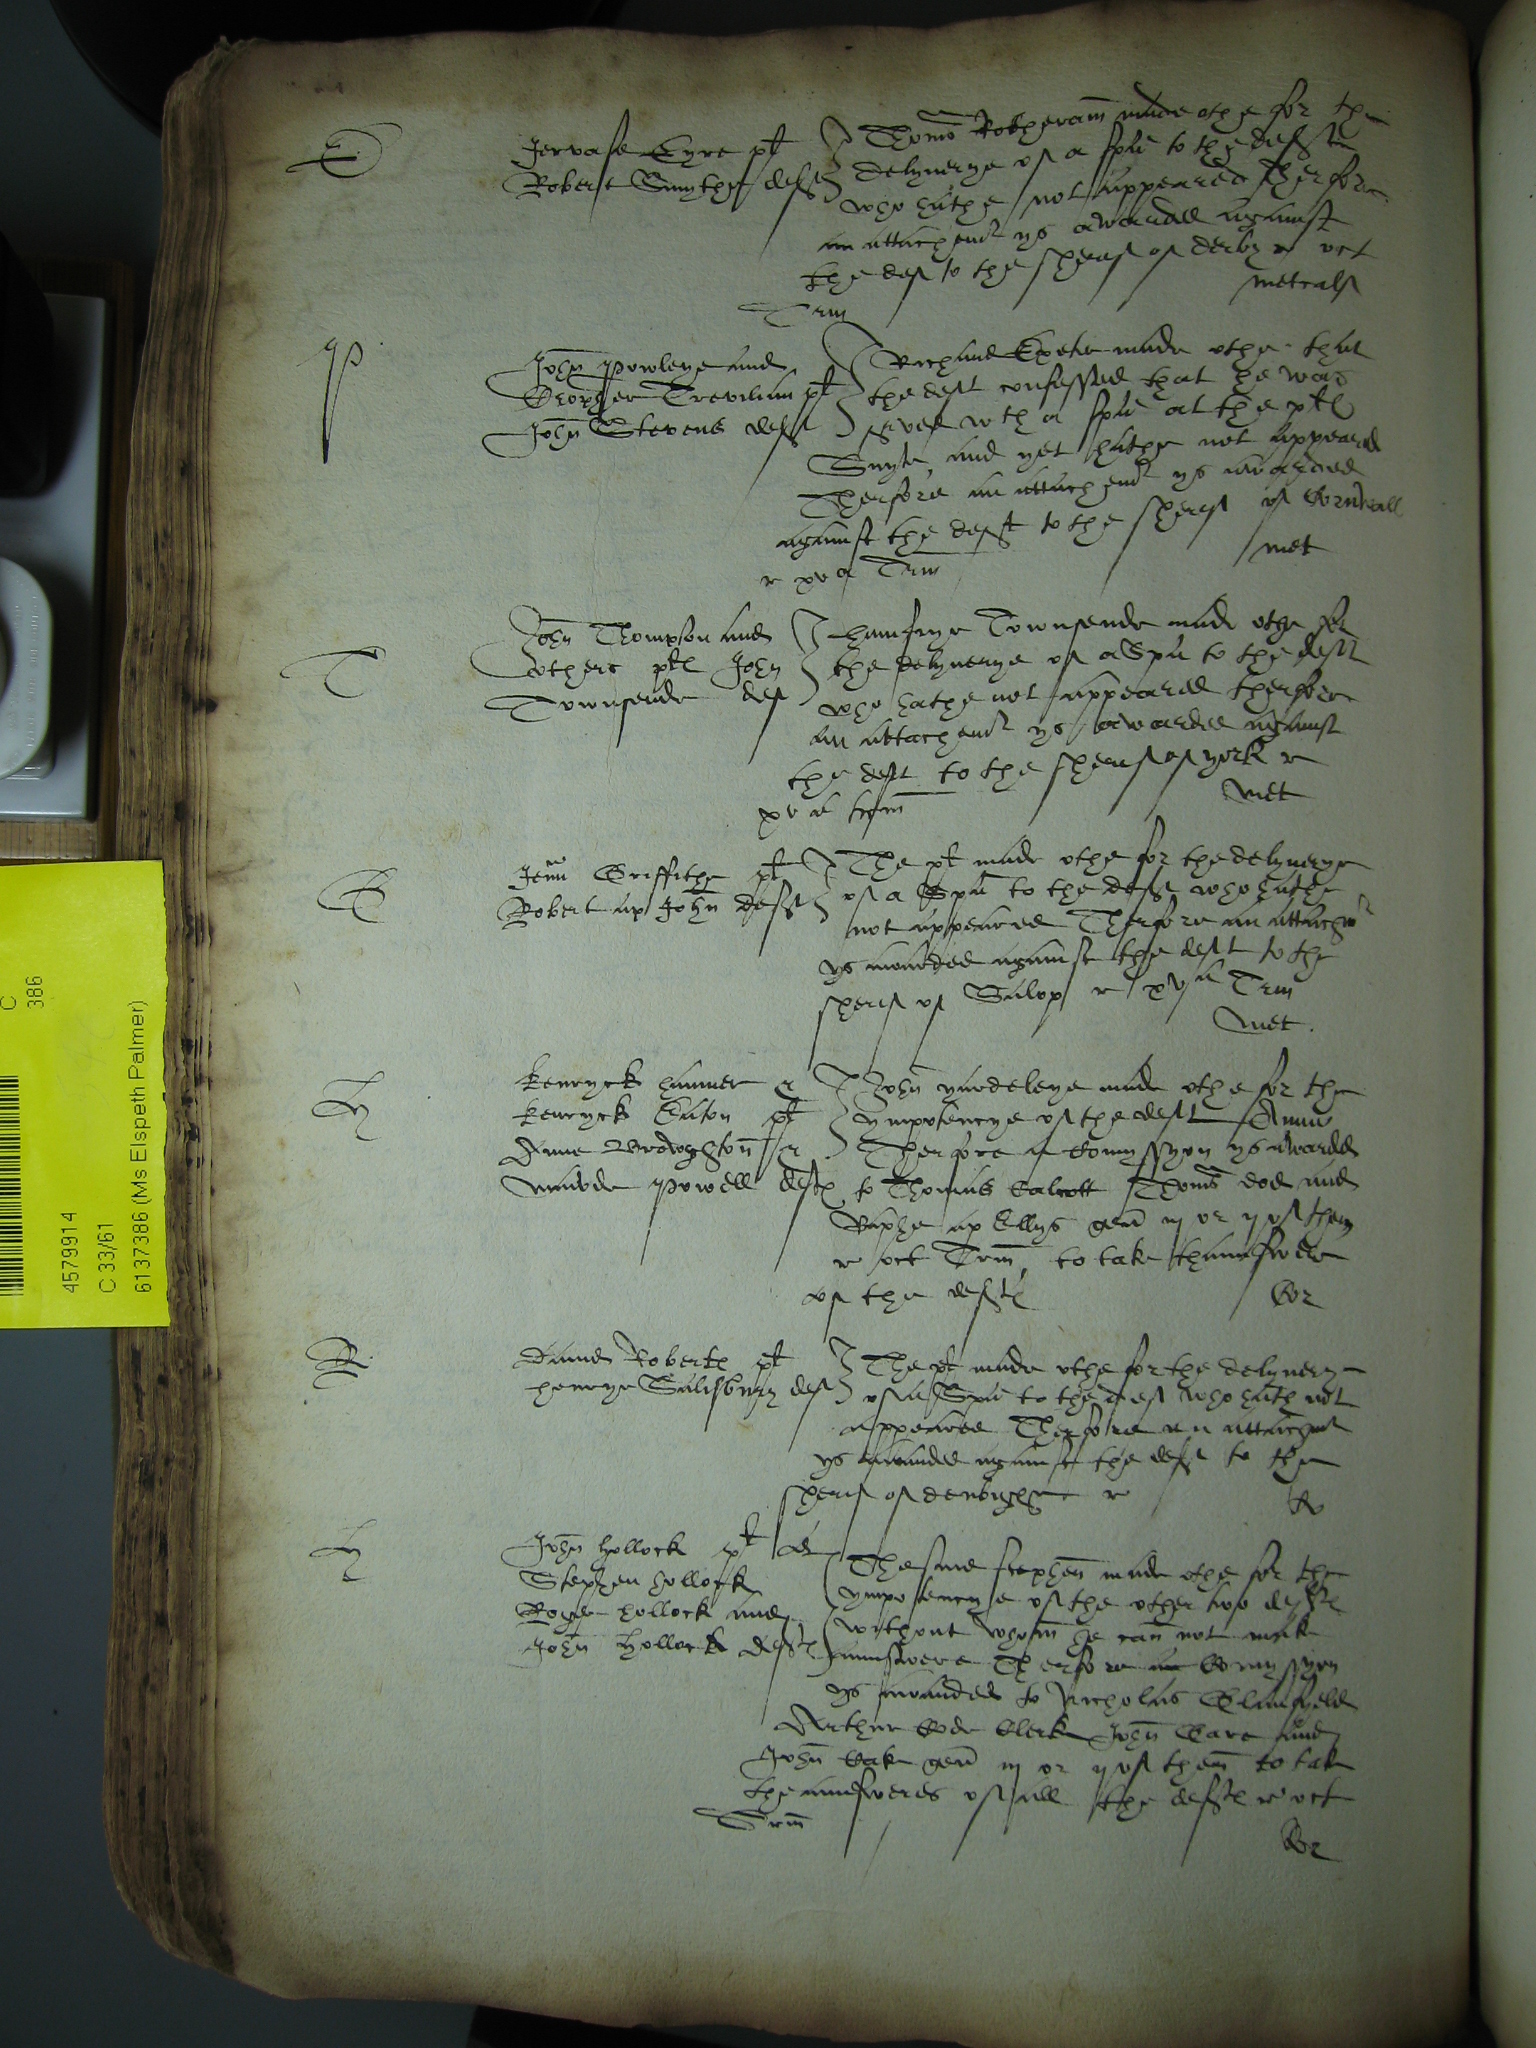 E
Jervase Eyre pt
Robert Smythe deft
Thoms Rotheram made othe for the
delyverye of a spa to the deft
who hathe not appeared therfore
an attachemt ys awarded against
the def to the sheref of derby r oct
Trin
metcalf
P
John Powleye and
Cristopher Trevilian pt
John Stevens deft
Richard made othe that
the deft confessed that he was
served wth a spa at the ptes
Suyte and yet hathe not appeared
Therfore an attachemt ys awarded
against the deft to the sheref of Cornwall
r xv a Trin
met
T
John Thompson and
others ptes John
Townsende def
humfrye Townsende made othe for
the delyverye of a Spa to the deft
who hathe not appeared therfore
an attachemt ys awarded against
the deft to the sheref of york r
xv a trin
met
G
Griffithe pt
Robert ap John deft
The pt made othe for the delyverye
of a Spa to the deft who hathe
not appeared Therfore an attachmt
ys awarded against the deft to the
sheref of Salop r xv a Trin
met
H
Kenryck hanmer &
Kenryck Eaton pt
Anne &
Mawde Powell deftes
John yardeleye made othe for the
ympotencye of the deft Anne
Therfore a Comyssyon ys awarded
to Thomas Calcott Thoms doe and
Raphe ap Ellys gen iij or ij of them
r oct Trin to take thaunswere
of the deftes
Cor
R
David Robertes pt
henrye Salisbury def
The pt made othe for the delyvery
of a Spa to the def who hath not
appeared Therfore an attachmt
ys awarded against the deft to the
sheref of denbighe r
Ro
H
John hollock pt
Stephen hollock
Roger hollock and
John hollock deftes
The said Stephen made othe for the
ympotencye of the other two deftes
without whom he can not make
aunswere Therfore a Comyssyon
ys awarded to Nicholas Glanfyelde
Arthur Code Clerk John Care and
John Cak gen iij or ij of them to take
the aunsweres of all the deftes r oct
Trin
Cor
C
386
4579914
C 33/61
6137386 (Ms Elspeth Palmer)